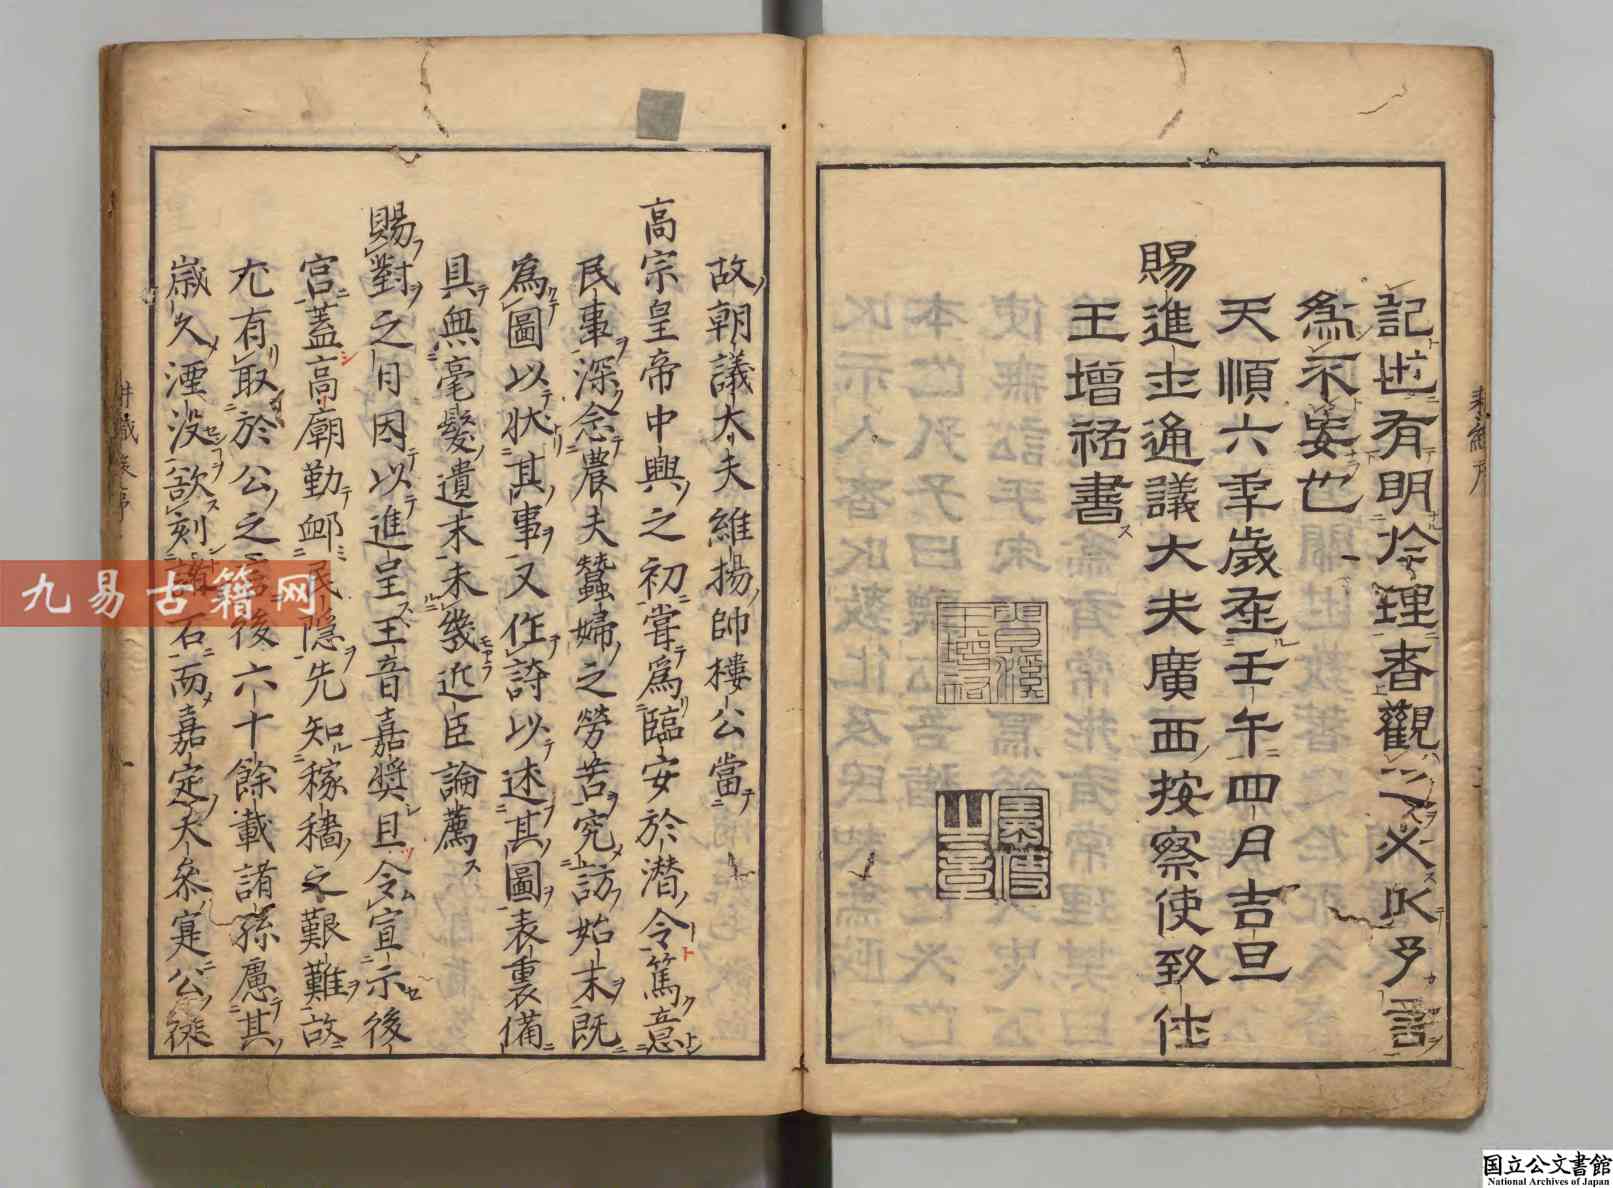 記也有明於理者觀之必以予言
為不妄也
天順六年歲在壬午四月吉旦
賜進士通議大夫廣西按察使致仕
王增祐書
故朝議大夫維揚帥樓公當
高宗皇帝中興之初嘗爲臨安於潛令篤意
民事深念農夫蠶婦之勞苦究訪始末既
為圖以狀其事又作詩以述其圖表裏備
具無毫髮遺末未幾近臣論薦
賜對之日因以進呈王音嘉奬且令宣示後
宮蓋高廟勤卹民隱先知稼穡之艱難故
尤有取於公之言後六十餘載諸孫慮其
歲久湮没欲刻諸石而嘉定大參寔公從
九易古籍网
国立公文書館
National Archives of Japan